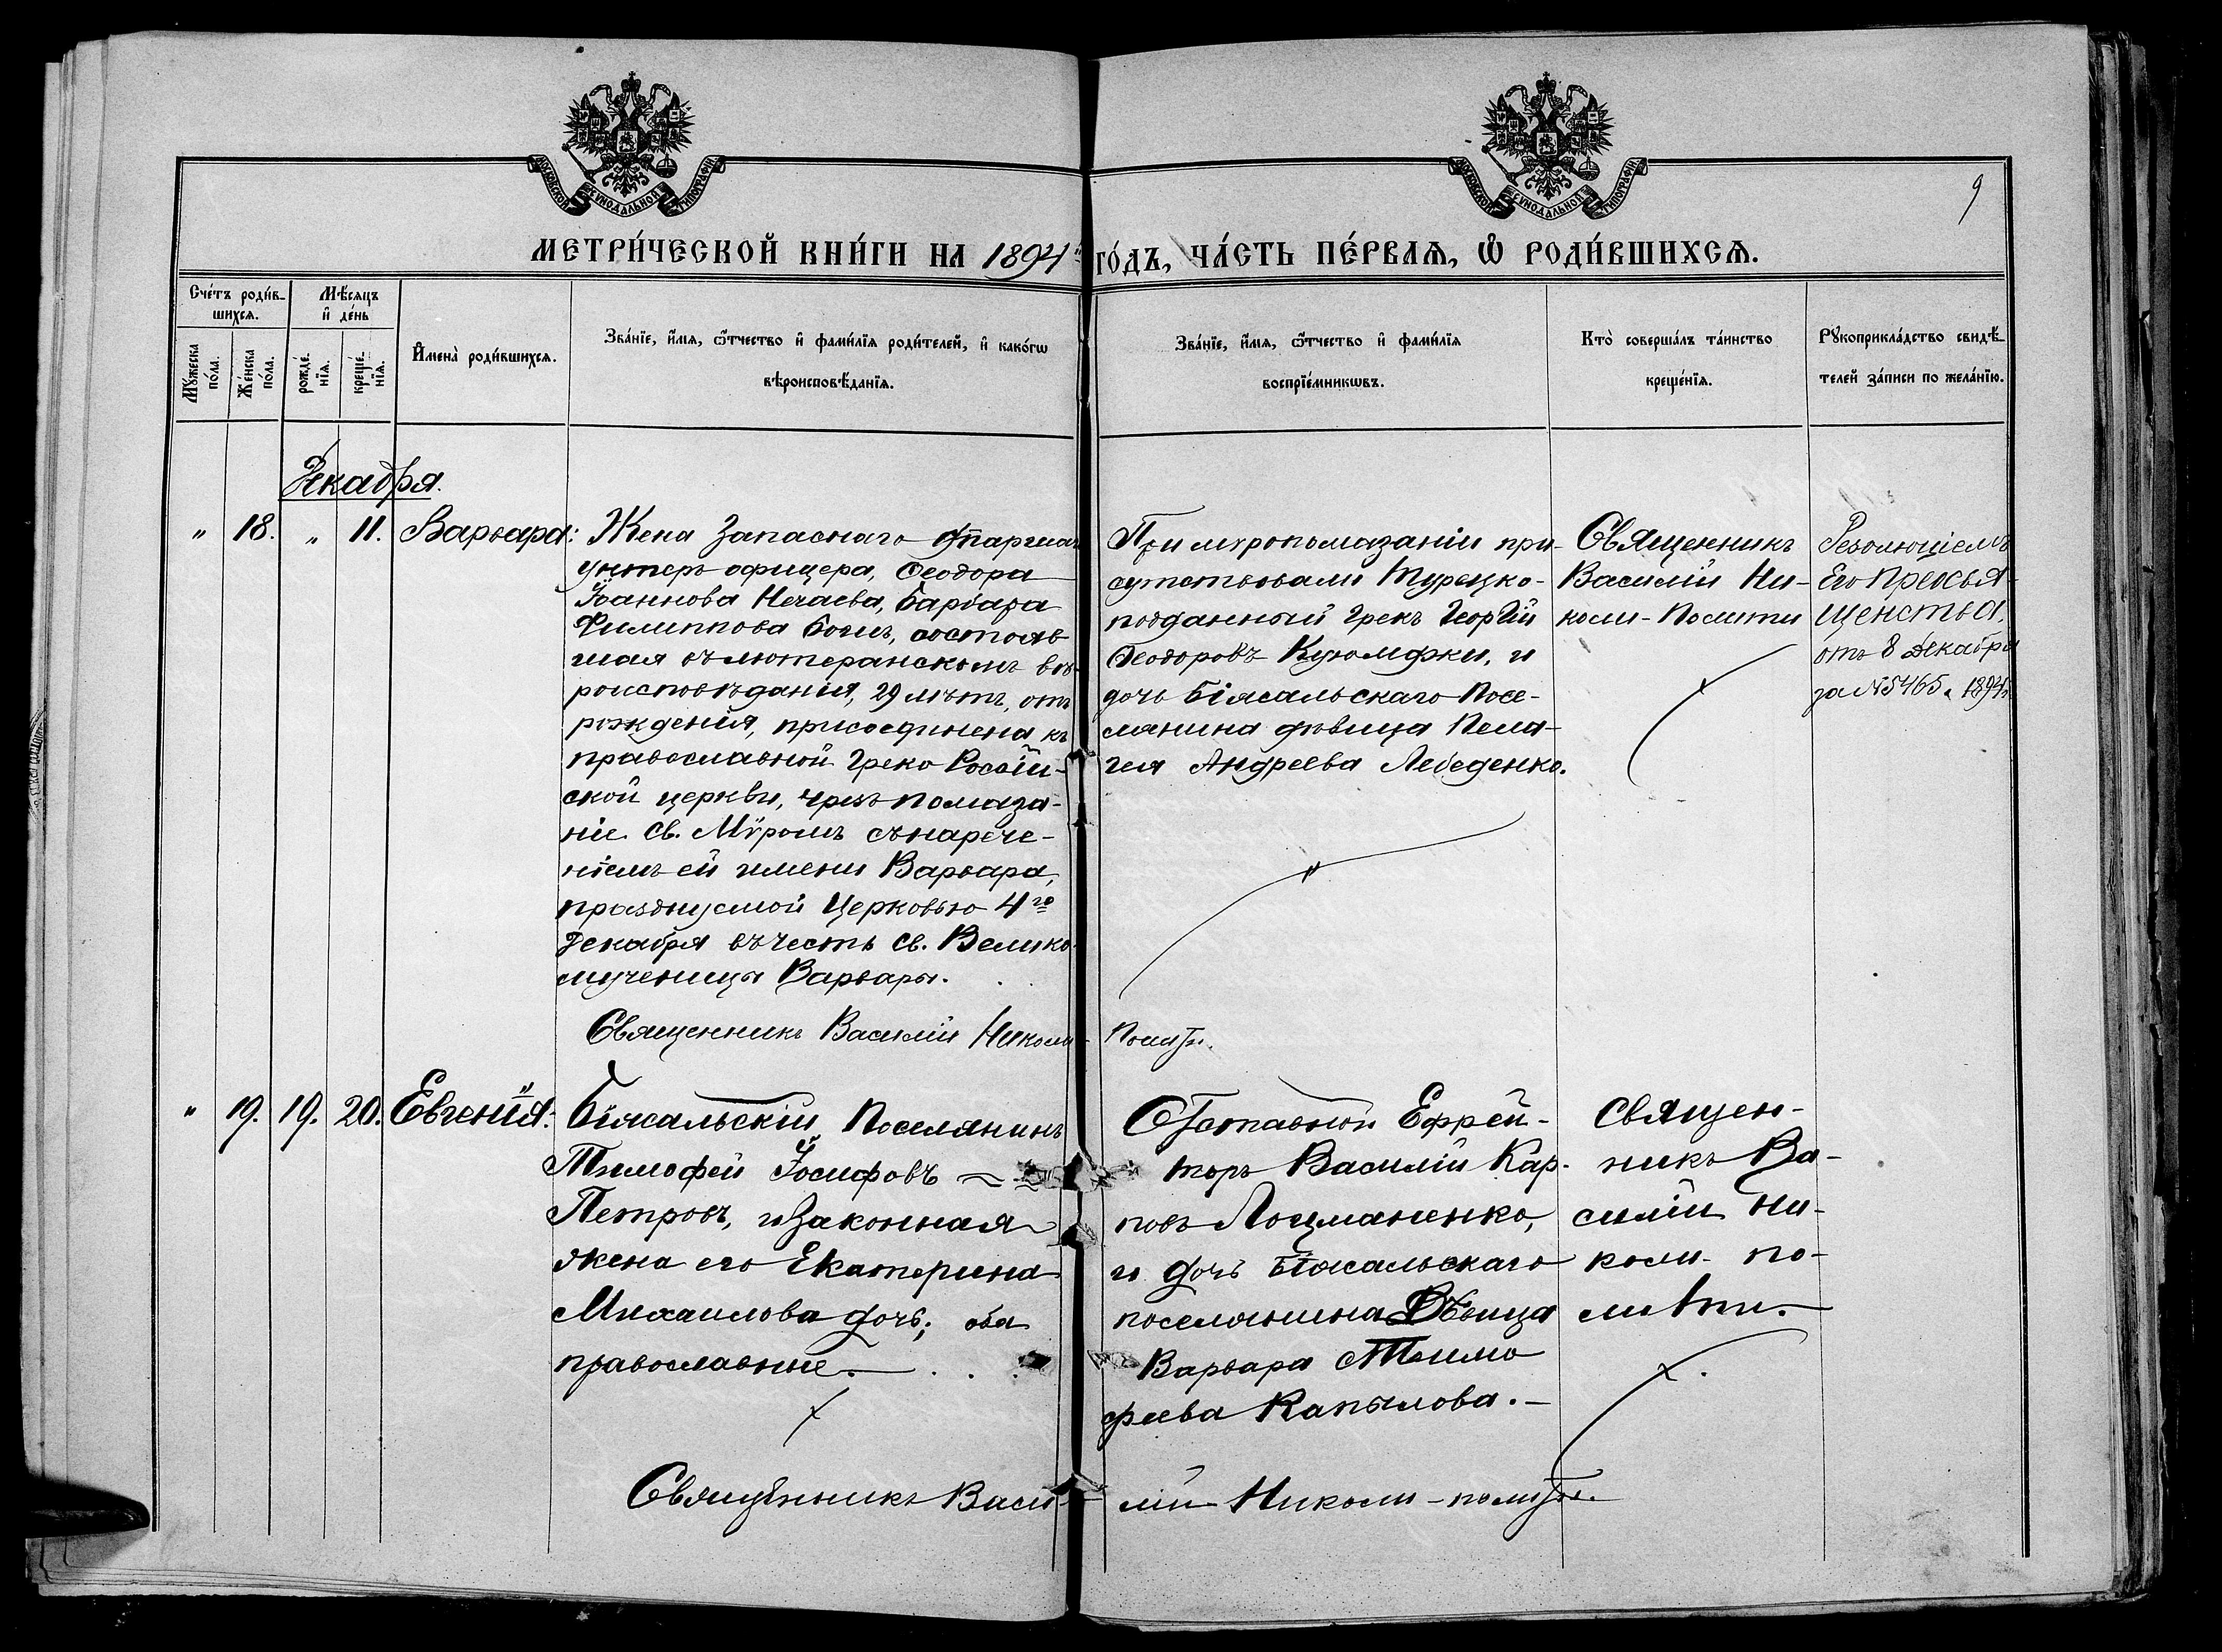 МОСКОВСКОЙ СУНОДАЛЬНОЙ ТИПОГРАФІИ
МОСКОВСКОЙ СУНОДАЛЬНОЙ ТИПОГРАФІИ
9
МЕТРИ́ЧЕСКОЙ КНИ́ГИ НА 1894й ГО́ДЪ, ЧА́СТЬ ПЕ́РВАѦ, Ѡ РОДИ́ВШИХСѦ.
Сче́тъ роди́в-
шихсѧ.
Мѣ́сѧцъ
и҆ де́нь
Мꙋ́жеска
по́ла.
Же́нска
по́ла.
рожде́-
нїѧ.
креще́-
нїѧ.
И҆мена̀ роди́вшихсѧ.
Зва́нїе, и҆́мѧ, ѻ҆́тчество и҆ фами́лїѧ роди́телей, и҆ како́гѡ
вѣроисповѣ́данїѧ.
Зва́нїе, и҆́мѧ, ѻ҆́тчество и҆ фами́лїѧ
воспрїе́мникѡвъ.
Кто̀ соверша́лъ та́инство
креще́нїѧ.
Рꙋкоприкла́дство свидѣ́-
телей за́писи по жела́нїю.
Декабря.
" 18. " 11. Варвара:
Жена Запаснаго
унтеръ офицера, Ѳеодора
Іоаннова Нечаева, Барбара
Филиппова Боги, состояв
шая въ лютеранскомъ вѣ-
роисповѣданія, 29 лѣтъ, отъ
рожденія, присоединена къ
православной Греко Россій-
ской церкви, чрезъ помаза-
ніе Св. Мѵромъ съ нарече-
ніемъ ей имени Варвара,
празднуемой Церковью 4го
Декабря въ честь Св. Велико-
мученицы Варвары.
При мѵропомазаніи при-
сутствовали Турецко-
подданный Грекъ Георгій
Ѳеодоровъ и
дочь Біясальскаго Посе-
лянина дѣвица Пела-
гея Андреева Лебеденко.
Священникъ
Василій Ни-
коли-Полити
Резолюціемъ
Его Преосвя-
щенства,
отъ 8 Декабря
за №5465. 1894г.
Священникъ Василій Николи-Полити.
" 19. 19. 20. Евгенія:
Біясальскій Поселянинъ
Тимофей Іосифовъ
Петровъ, и Законная
жена его Екатерина
Михаилова дочь; оба
православные.
Отставной Ефрей-
торъ Василій Кар-
повъ Лоцманенко,
и дочь Біясальскаго
поселянина Дѣвица
Варвара Тимо
феева Капылова.
Священ-
никъ Ва-
силій Ни-
коли-По-
лити.
Священникъ Васи-лій Николи-полити.